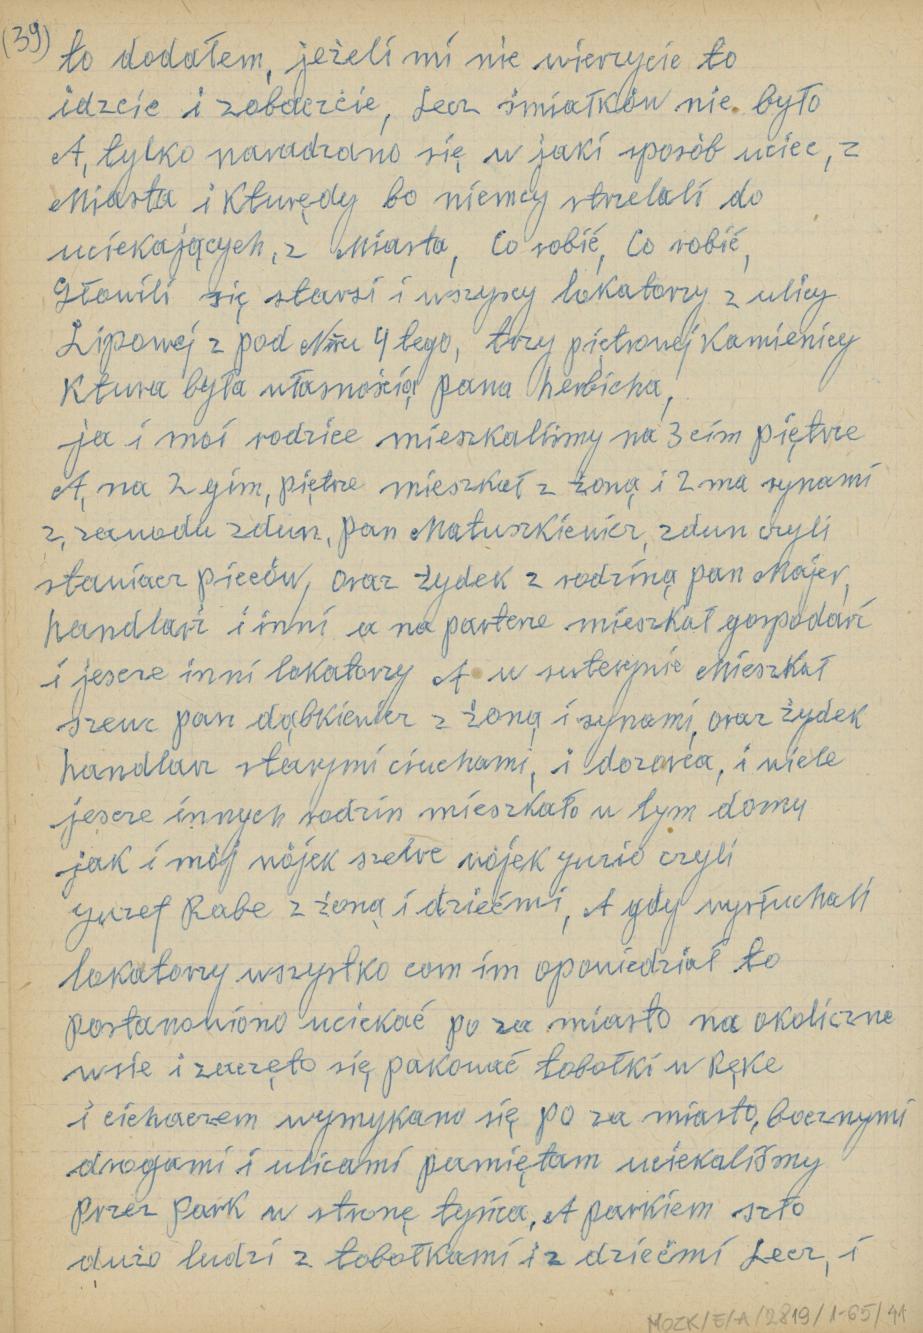 (39) to dodałem, jeżeli mi nie wierzycie to
idzcie i zobaczcie, Lecz śmiałków nie było
A, tylko naradzano się w jaki sposób uciec, z
Miasta i Kturędy bo niemcy strzelali do
uciekających, z Miasta, Co robić, Co robić,
Głowili się starsi i wszyscy lokatorzy z ulicy
Lipowej z pod Nru 4 tego, trzy piętrowej Kamienicy
Ktura była własnością pana herbicha,
ja i moi rodzice mieszkaliśmy na 3 cim piętrze
A, na 2 gim, piętrze mieszkał z żoną i 2 ma synami
z, zawodu zdun, pan Matuszkiewicz, zdun czyli
stawiacz pieców, oraz żydek z rodziną pan Majer,
handlarz i inni a na parterze mieszkał gospodarz
i jescze inni lokatorzy A w suterynie Mieszkał
szewc pan dąbkiewicz z żoną i synami, oraz żydek
handlarz starymi ciuchami, i dozorca, i wiele
jescze innych rodzin mieszkało w tym domy
jak i mój wójek wójek yuzio czyli
yuzef Rabe z żoną i dziećmi, A gdy wysłuchali
lokatorzy wszystko com im opowiedział to
postanowiono uciekać po za miasto na okoliczne
wsie i zaczęto się pakować tobołki w Ręke
i cichaczem wymykano się po za miasto, bocznymi
drogami i ulicami pamiętam uciekaliśmy
przez park w stronę tyńca, A parkiem szło
dużo ludzi z tobołkami i z dziećmi Lecz, i
MOZK/E/A/2819/1-65/41